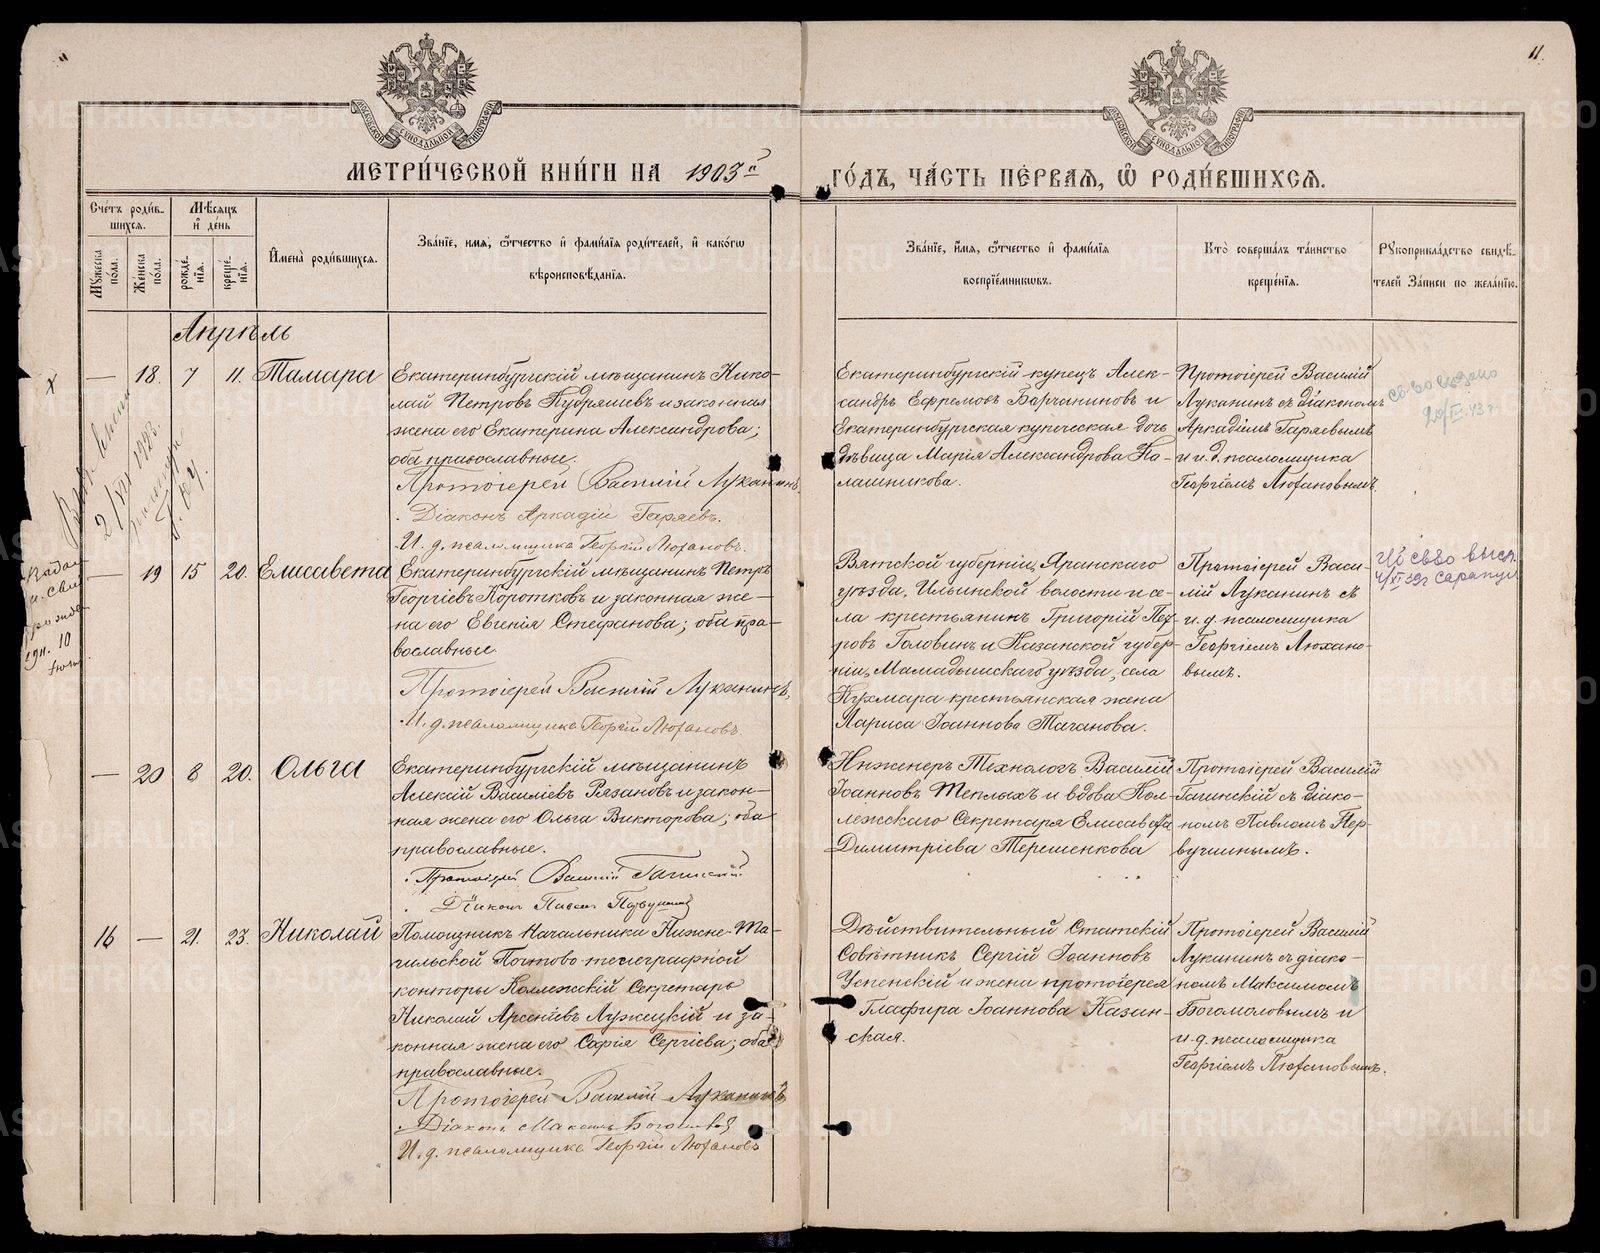 11.
МОСКОВСКОЙ СѴНОДАЛЬНОЙ ТИПОГРАФІИ
МОСКОВСКОЙ СѴНОДАЛЬНОЙ ТИПОГРАФІИ
МЕТРИ́ЧЕСКОЙ КНИ́ГИ НА 1903й
ГО́ДЪ, ЧА́СТЬ ПЕ́РВАѦ, Ѽ РОДИ́ВШИХСѦ.
Сче́тъ роди́в-
шихся.
Мѣ́сяцъ
и҆ де́нь
Мꙋ́жеска
пола.
Же́нска
пола.
рожде́-
нїя.
креще́-
нїя.
И҆мена̀ роди́вшихся.
Зва́нїе, и҆мя, ѻ҆́тчество и҆ фами́лїя роди́телей, и҆ како́гѡ
вѣроисповѣ́данїя.
Зва́нїе, и҆́мя, ѻ҆́тчество и҆ фами́лїя
воспрїе́мникѡвъ.
Кто̀ соверша́лъ та́инство
креще́нїя.
Рꙋкоприкла́дство свидѣ́-
телей За́писи по жела́нїю.
Апрѣль
— 18. 7 11. Тамара
Екатеринбургскій мѣщанинъ Нико-
лай Петровъ Кудряшевъ и законная
жена его Екатерина Александрова;
оба православные.
Протоіерей Василій Луканинъ.
Діаконъ Аркадій Гаряевъ.
И. д. псаломщика Георгій Люхановъ.
Екатеринбургскій купецъ Алек-
сандръ Ефремовъ Барчаниновъ и
Екатеринбургская купеческая дочь
дѣвица Марія Александрова Ка-
лашникова.
Протоіерей Василій
Луканинъ съ діакономъ
Аркадіемъ Гаряевымъ
и и. д. псаломщика
Георгіемъ Люхановымъ.
— 19 15 20. Елисавета
Екатеринбургскій мѣщанинъ Петръ
Георгіевъ Коротковъ и законная же-
на его Евгенія Стефанова; оба пра-
вославные.
Протоіерей Василій Луканинъ,
И. д. псаломщика Георгій Люхановъ.
Вятской губерніи, Яранскаго
уѣзда, Ильинской волости и се-
ла крестьянинъ Григорій Пет-
ровъ Головинъ и Казанской губер-
ніи, Мамадышскаго уѣзда, села
Кукмара крестьянская жена
Лариса Іоаннова Таганова.
Протоіерей Васи-
лій Луканинъ съ
и. д. псаломщика
Георгіемъ Люхано-
вымъ.
— 20 8 20. Ольга
Екатеринбургскій мѣщанинъ
Алексій Василіевъ Рязановъ и закон-
ная жена его Ольга Викторова; оба
православные.
Протоіерей Василій Гагинскій
Діаконъ Павелъ Первушинъ
Инженеръ Технологъ Василій
Іоанновъ Теплыхъ и вдова Кол-
лежскаго Секретаря Елисавета
Димитріева Терешенкова
Протоіерей Василій
Гагинскій съ діако-
номъ Павломъ Пер-
вушинымъ.
16 — 21. 23. Николай
Помощникъ Начальника Нижне-Та-
гильской Почтово-телеграфной
конторы Коллежскій Секретарь
Николай Арсеніевъ Лужецкій и за-
конная жена его Софія Сергіева; оба
православные.
Протоіерей Василій Луканинъ
Діаконъ Максимъ Богомоловъ
И. д. псаломщика Георгій Люхановъ
Дѣйствительный Статскій
Совѣтникъ Сергій Іоанновъ
Успенскій и жена протоіерея
Глафира Іоаннова Казан-
ская.
Протоіерей Василій
Луканинъ съ діако-
номъ Максимомъ
Богомоловымъ и
и. д. псаломщика
Георгіемъ Люхановымъ.